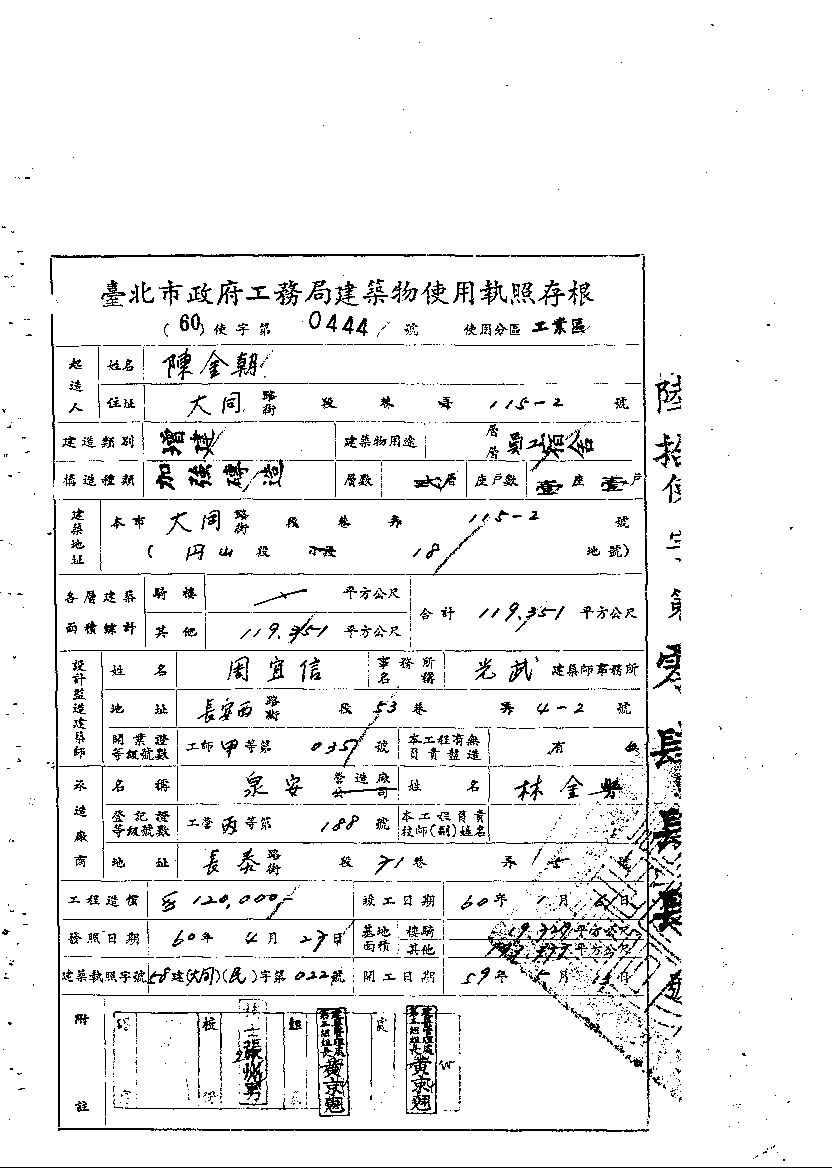 臺北市政府工務局建築物使用執照存根
(60)使字第 0444 號 使用分區 工業區
起造人 姓名 陳金朝
住址 大同 路街 段 巷 弄 115-2 號
建造類別 增建 建築物用途 層層 員工宿舍
構造種類 加強磚造 層數 層 座戶數 壹座 壹戶
建築地址 本市 大同 路街 段 巷 弄 115-2 號
(円山段 小段 18 地號)
各層建築面積總計 騎樓 平方公尺 合計 119.351 平方公尺
其他 119.351 平方公尺
設計監造建築師 姓名 周宜信 事務所名稱 光武 建築師事務所
地址 長安西 路街 段 53 巷 弄 4-2 號
開業證等級號數 工師甲等第 035 號 本工程有無負責監造 有
承造廠商 名稱 泉安 營造廠公司 姓名 林金
登記證等級號數 工營丙等第 188 號 本工程負責技師(副)姓名
地址 長泰 路街 段 71 巷 弄
工程造價 120,000 竣工日期 60年 1月 日
發照日期 60年 4月 27日 基地面積 樓騎 平方公尺
其他 平方公尺
建築執照字號 58建(大同)(民)字第022號 開工日期 59年 5月 日
附註
黃京翹
黃京翹
陸拾使字第零肆肆肆號